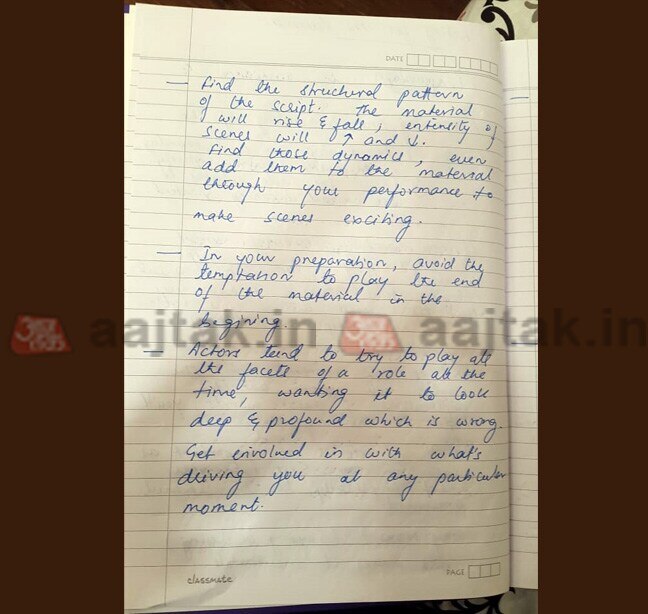 DATE
— Find the structural pattern
of the script. The material
will rise & fall, entensity of
scenes will ↑ and ↓.
Find those dynamics, even
add them to the material
through your performance to
make scenes exciting.
— In your preparation, avoid the
temptation to play the end
of the material in the
begining.
आज तक aajtak.in आज तक aajtak.in
— Actors tend to try to play all
the facets of a role all the
time, wanting it to look
deep & profound which is wrong.
Get envolved in with what's
driving you at any particular
moment.
classmate
PAGE